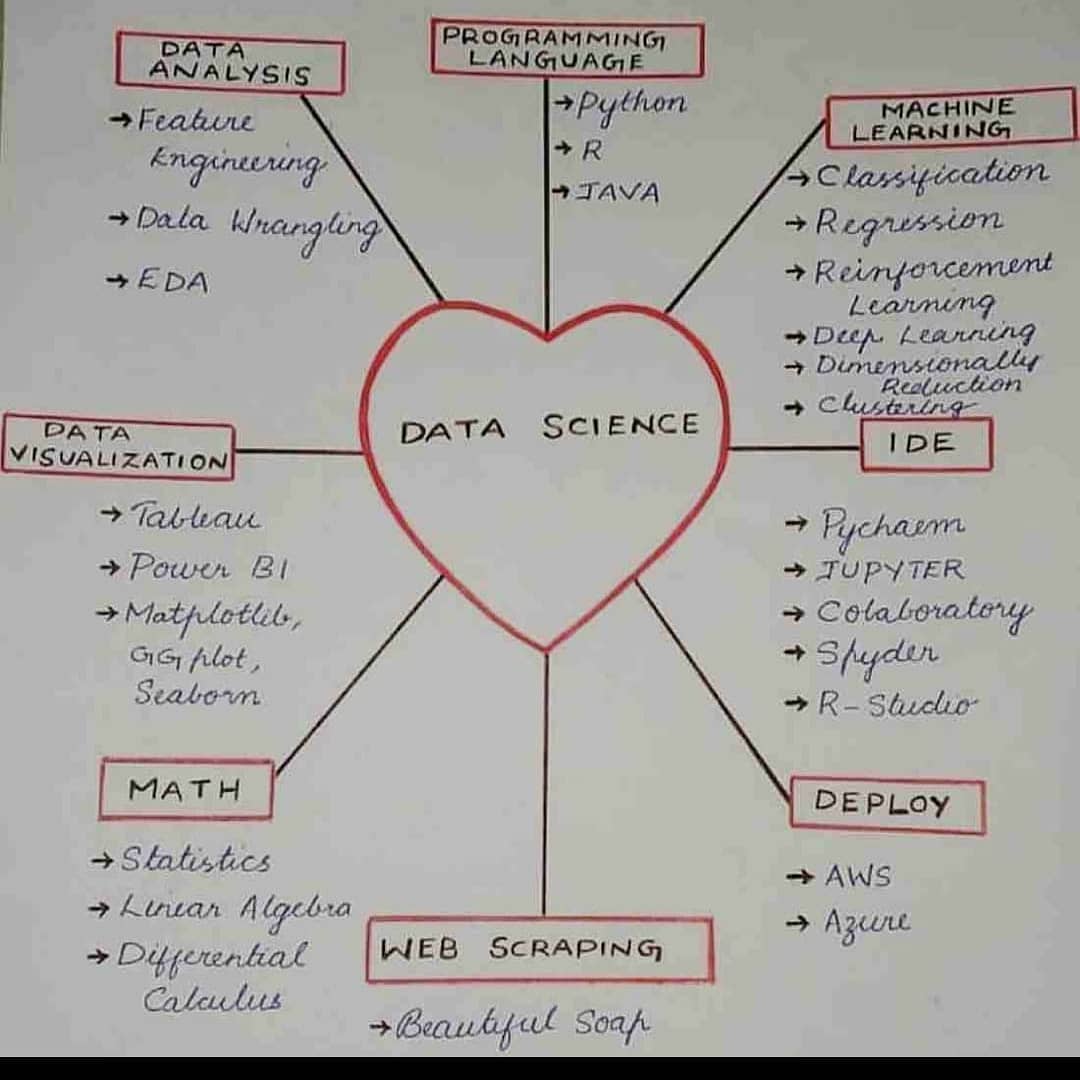 DATA
ANALYSIS
→ Feature
Engineering
→ Data Wrangling
→ EDA
PROGRAMMING
LANGUAGE
→ Python
→ R
→ JAVA
MACHINE
LEARNING
→ Classification
→ Regression
→ Reinforcement
Learning
→ Deep Learning
→ Dimensionally
Reduction
→ Clustering
DATA SCIENCE
DATA
VISUALIZATION
→ Tableau
→ Power BI
→ Matplotlib,
GG plot,
Seaborn
IDE
→ Pycharm
→ JUPYTER
→ Colaboratory
→ Spyder
→ R-Studio
MATH
→ Statistics
→ Linear Algebra
→ Differential
Calculus
WEB SCRAPING
→ Beautiful Soap
DEPLOY
→ AWS
→ Azure